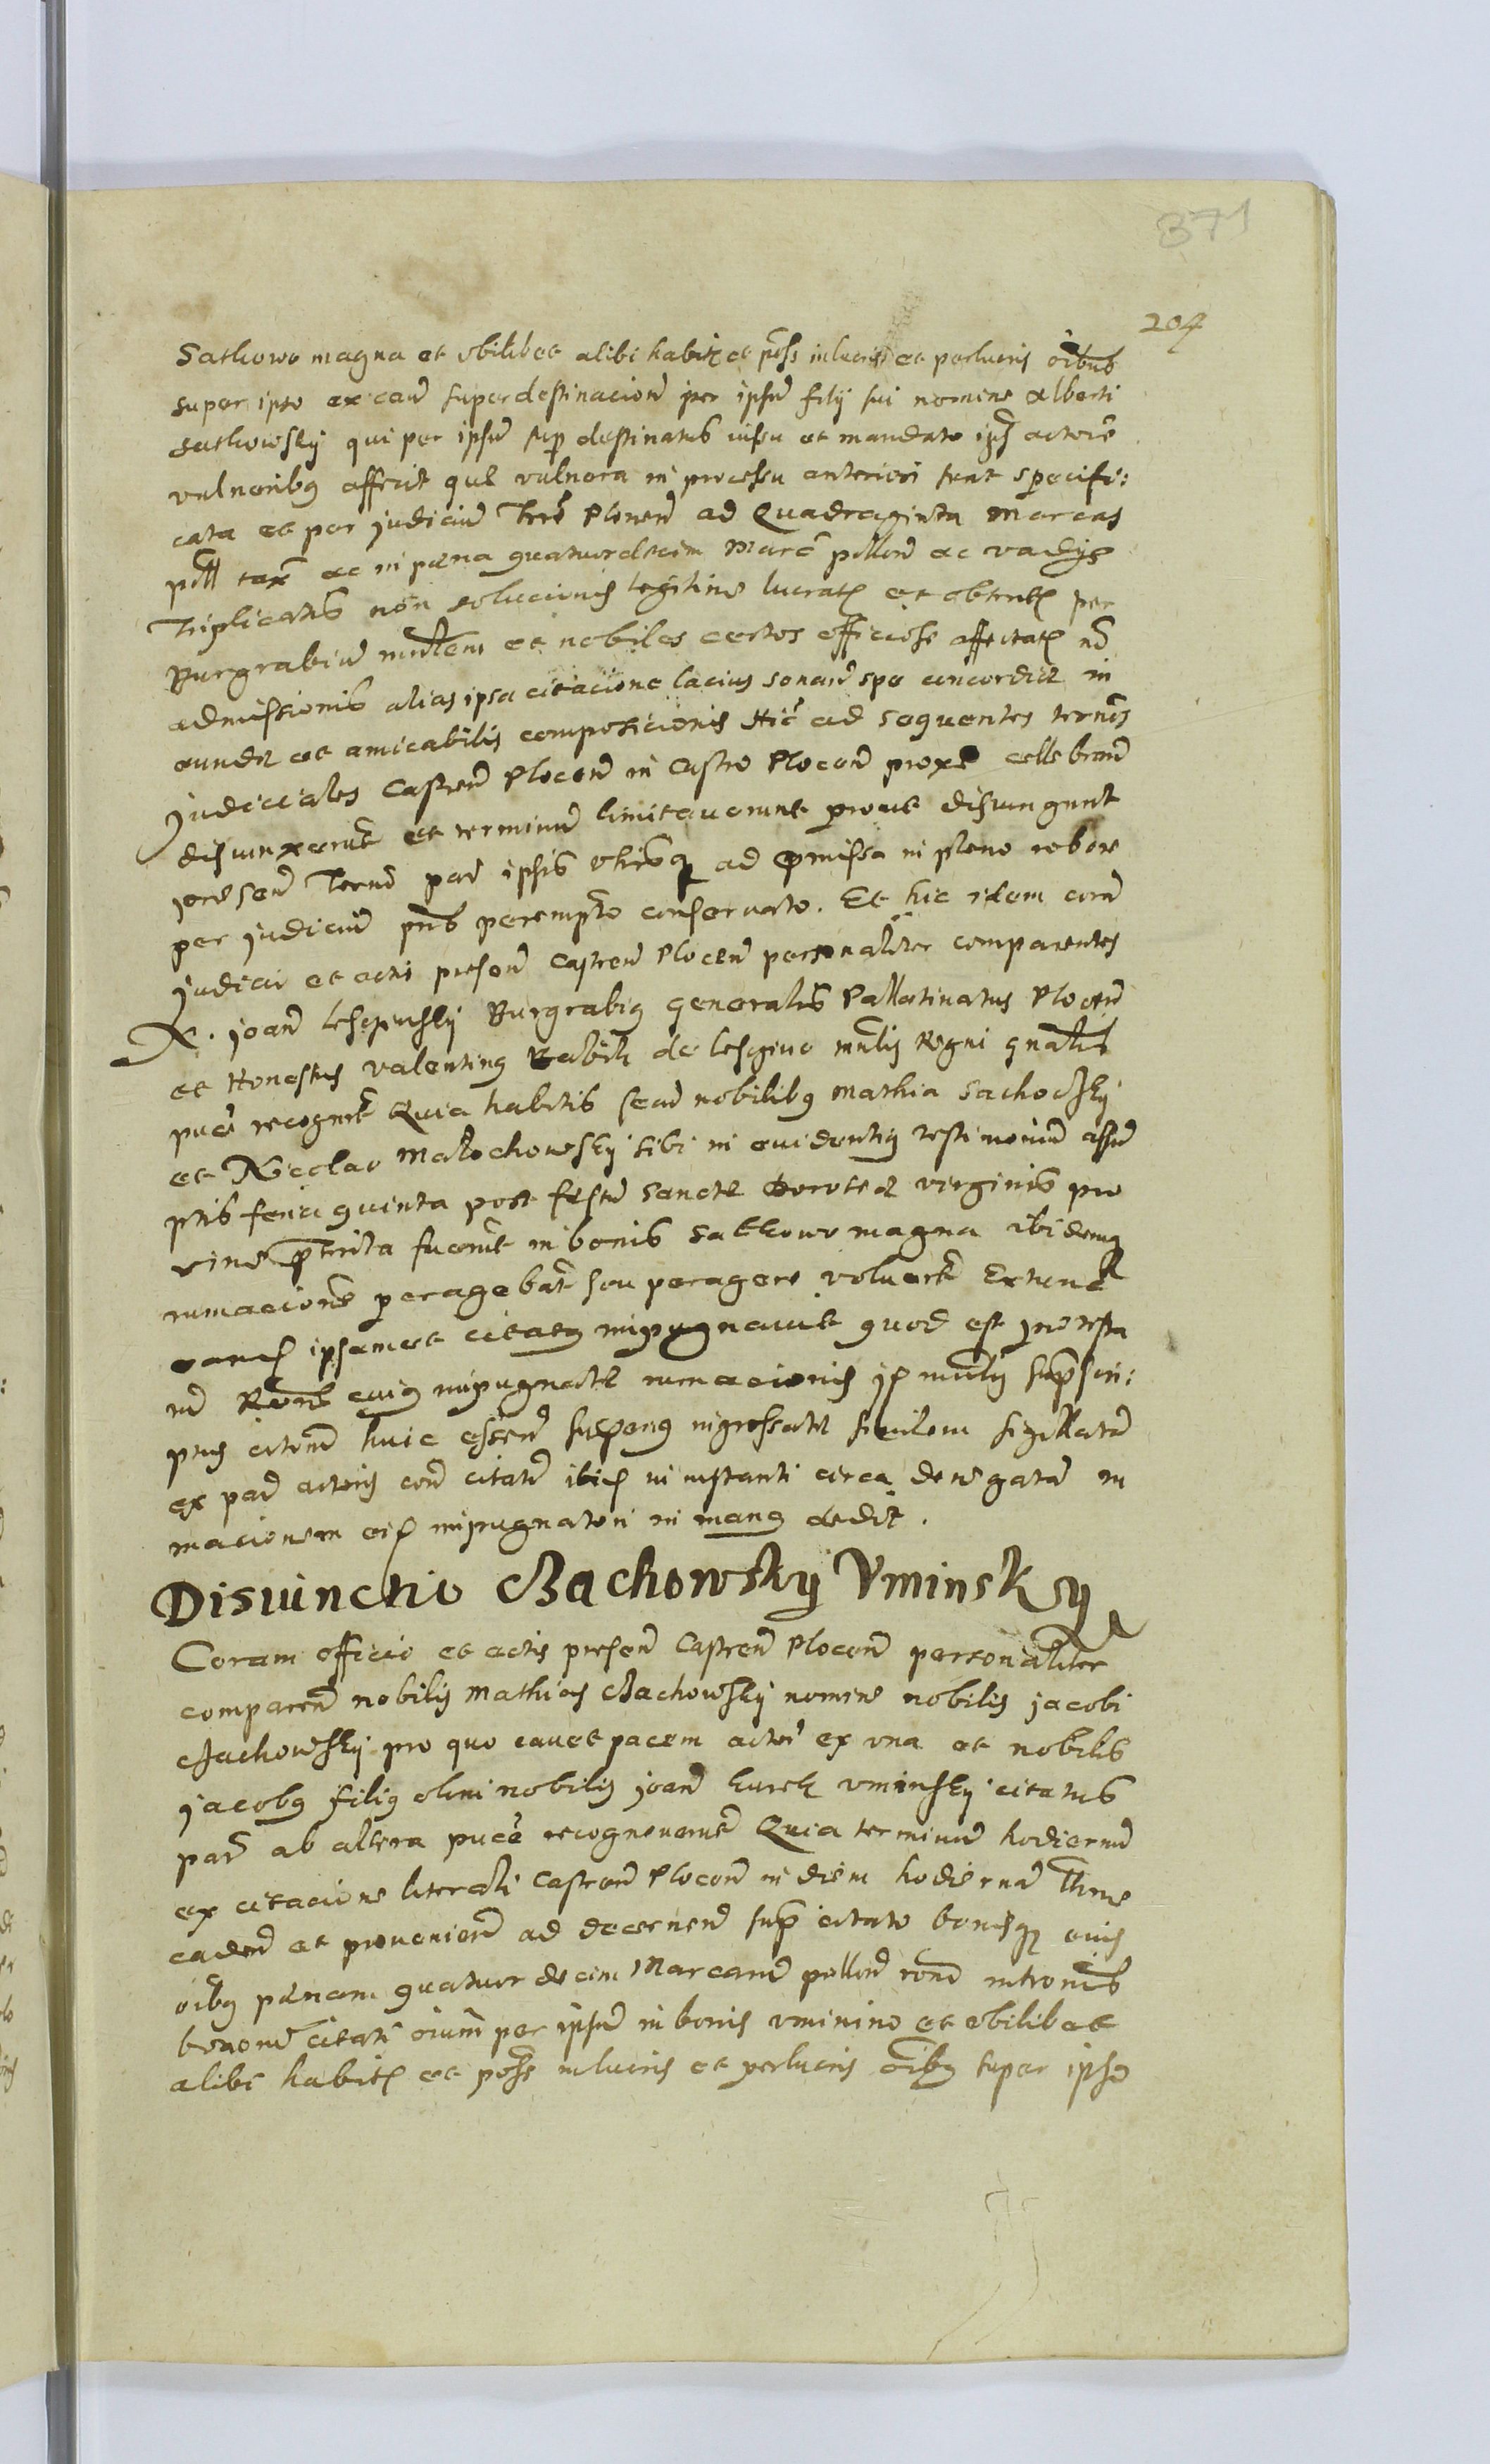 371
204
Sathowo magna et vbilibet alibi habit et poss inlucris et perlucris oibus
super ipso ex cau superdestinacione per ipsum filij sui nomine Alberti
Sathowskij qui per ipsum sup destinatus iussu et mandato ips actore
vulneribq affecit que vulnera in processu anteriori sunt specifi:
cata et per judiciu Terre Plocen ad Quadraginta Marcas
poll tax ac in pena quatuordecim Marc pollon ac vadijs
Triplicatis non solucionis legitime lucrat et obtent per
Burgrabiu et nobiles certos officiose affectat
admissionis alias ipsa citacione lacius sonan spe concordie in
eunde et amicabilis composicionis Hic ad sequentes termis
Judiciales Castren Plocen in Castro Plocen proxe cellebran
disiunxerut et terminu limitauerunt prout disiungunt
presen Termo par ipsis vtrisq ad pmissa in pleno robore
per judiciu pns perempto conseruato. Et hic idem cora
Judicio et actis presen Castren Plocen personaliter comparentes
N. Joan Burgrabiq generalis Pallatinatus Plocen
et Honestus valentinq de mnlis Regni gnalis
puce recognt Quia habitis secu nobilibq Mathia Sachockij
et Nicolao Malochowskij sibi in euidentiq testimoniu assu
ptis feria quinta post festu Sancte Dorothee virginis pro
xime pterita fuerut in bonis Sathowo magna ibidemq
rumacione peragebat seu peragere voluert Extunc
eand ipsamet citatq inpugnauit quod est protesta
tu Rone cuiq inpugnate rumacionis id mnlis supscri:
ptus citone huic essen superiq ingrossate similem sigillata
ex par actoris con citatu ibid in instanti circa denegata ru
macionem eid inpugnatori in manq dedit.
Disiunctio Czachowsky Vminsky
Coram officio et actis presen Castren Plocen personaliter
comparen nobilis Mathias Czachowskij nomine nobilis Jacobi
Czachowskij pro quo cauet pacem actor ex vna et nobilis
Jacobq filiq olim nobilis Joan kurek vminskij citatus
par ab altera puce recognouerut Quia terminu hodiernu
ex citacione literali Castren Plocen in diem hodierna
caden et prouenien ad decernen sup citato bonisq eius
oibq penam quatuordecim Marcaru pollon rone intromis
bonoru citati oium per ipsum in bonis vminino et vbilibet
alibi habit et poss inlucris et perlucris oibq super ipso